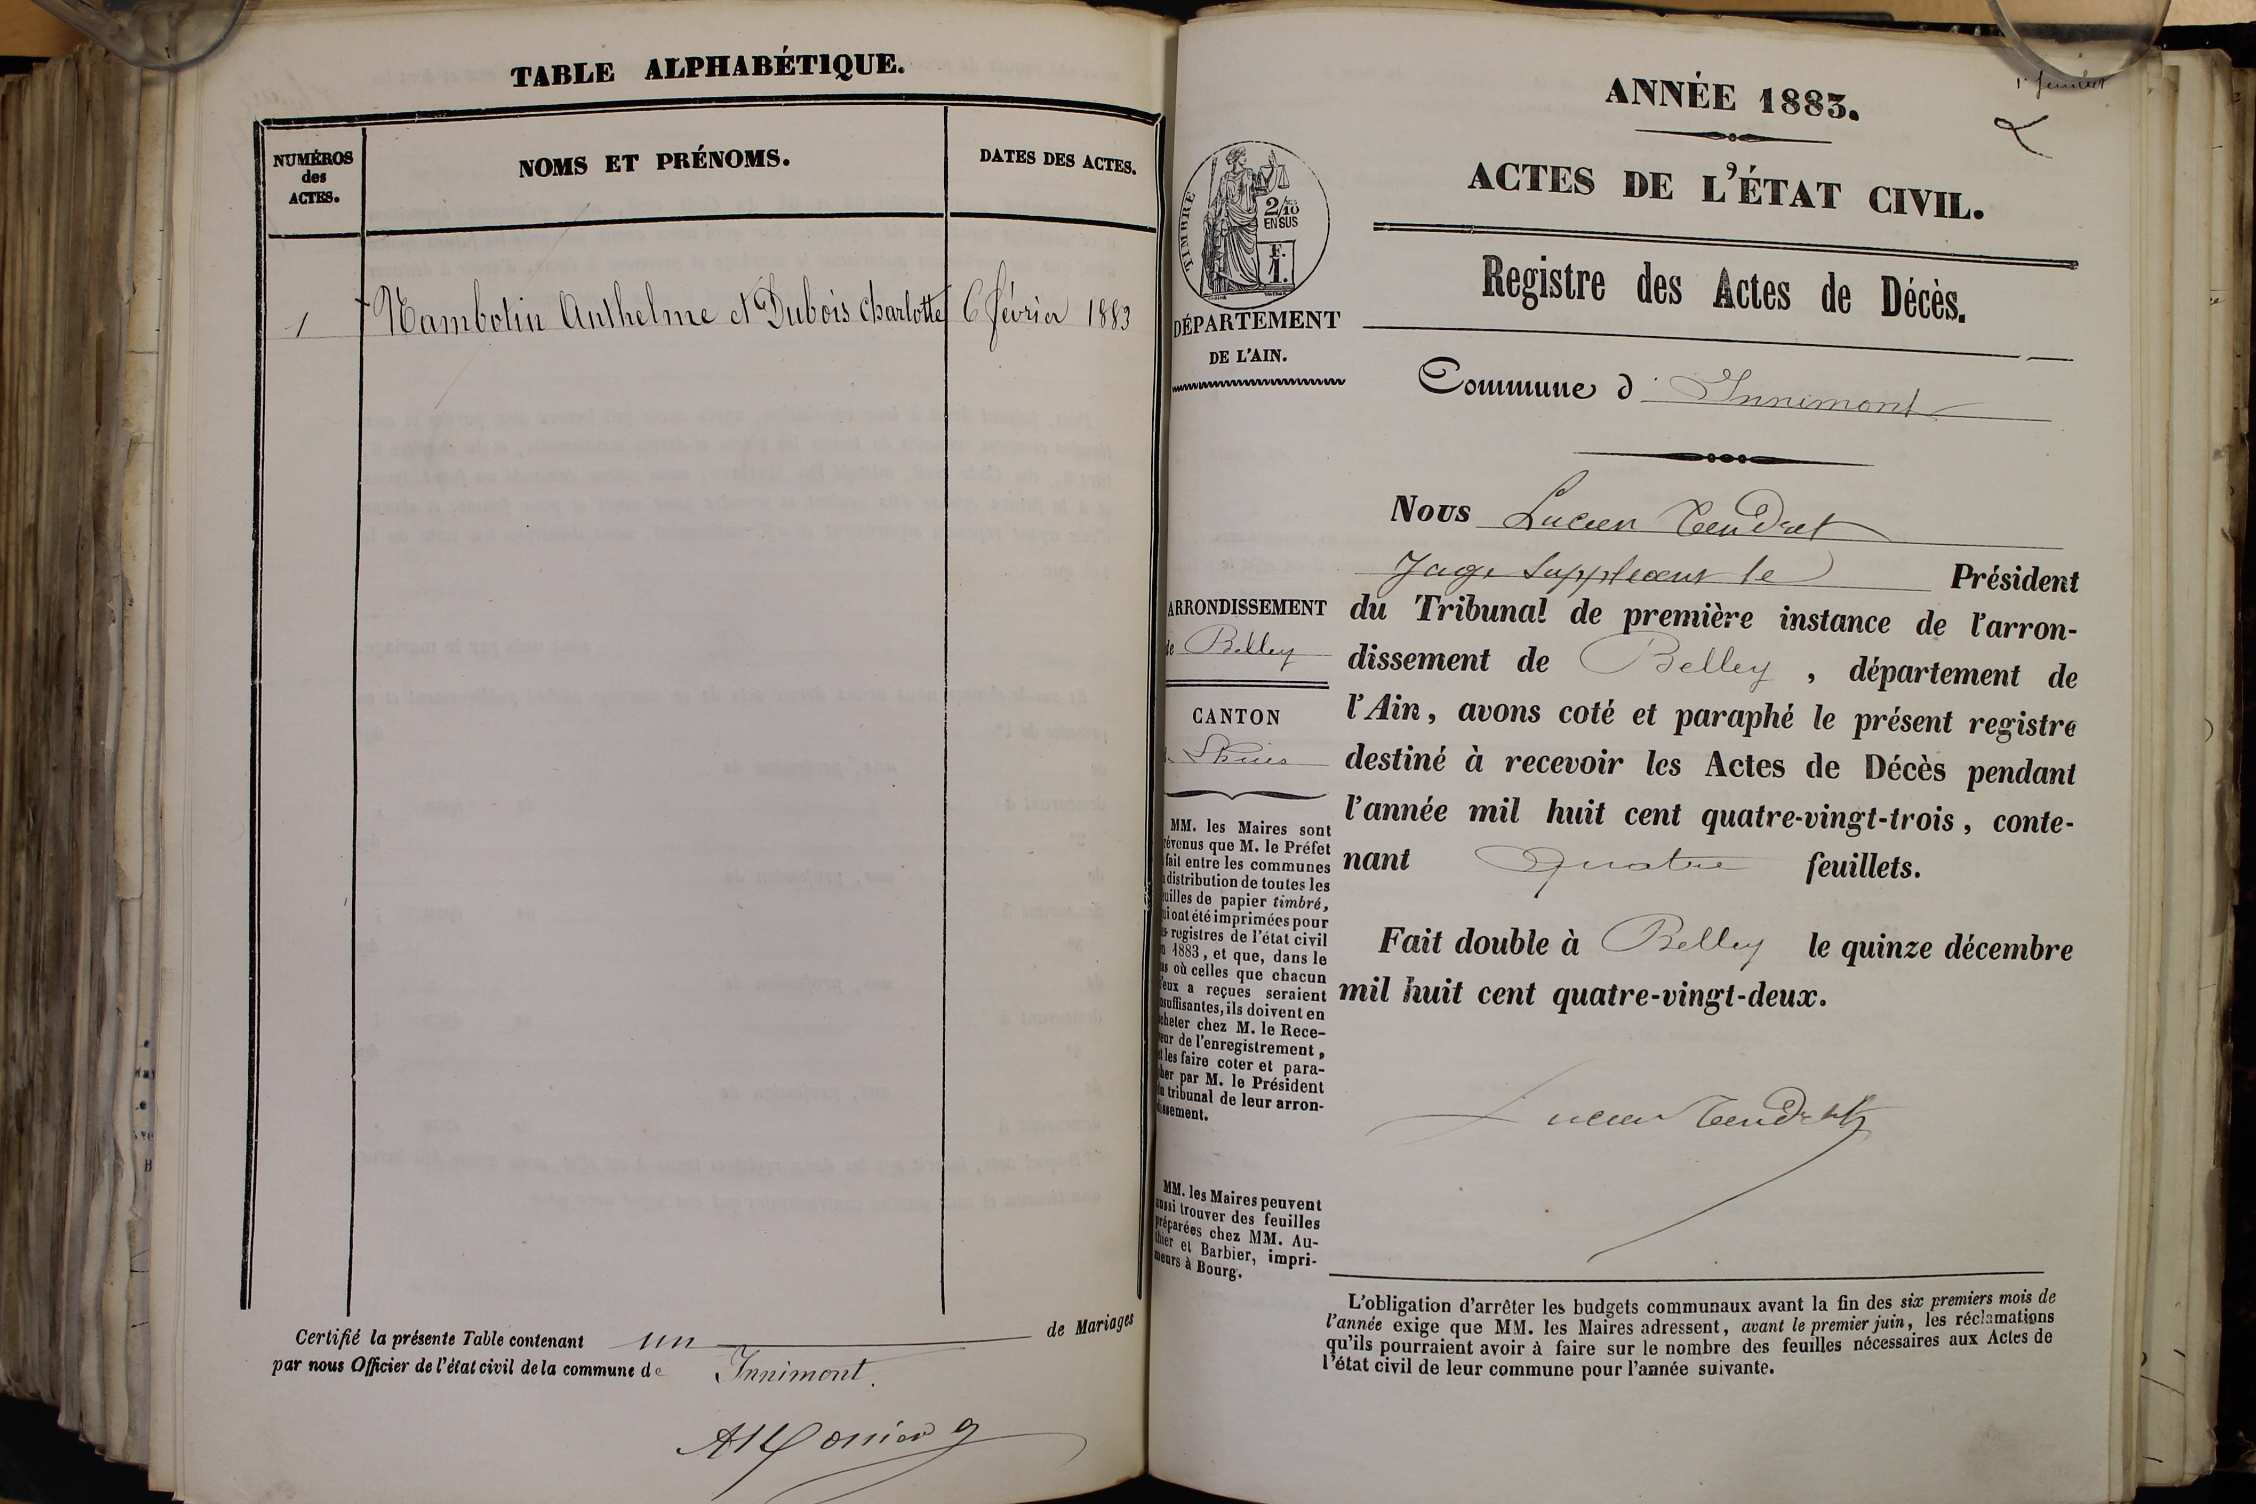 TABLE ALPHABÉTIQUE.
NUMÉROS
des
ACTES.
NOMS ET PRÉNOMS.
DATES DES ACTES.
1 Nambotin Anthelme et Dubois Charlotte 6 février 1883
Certifié la présente Table contenant un de Mariages
par nous Officier de l'état civil de la commune de Innimont.
1er feuillet
ANNÉE 1883.
ACTES DE L'ÉTAT CIVIL.
Registre des Actes de Décès.
TIMBRE
2/10
EN SUS
F.
1.
DÉPARTEMENT
DE L'AIN.
Commune d'Innimont
Nous Lucien Tendret
Juge Suppléant le Président
du Tribunal de première instance de l'arron-
dissement de Belley, département de
l'Ain, avons coté et paraphé le présent registre
destiné à recevoir les Actes de Décès pendant
l'année mil huit cent quatre-vingt-trois, conte-
nant quatre feuillets.
Fait double à Belley le quinze décembre
mil huit cent quatre-vingt-deux.
Lucien Tendret
ARRONDISSEMENT
de Belley
CANTON
Lhuis
MM. les Maires sont
révenus que M. le Préfet
fait entre les communes
distribution de toutes les
uilles de papier timbré,
ui ont été imprimées pour
registres de l'état civil
n 1883, et que, dans le
as où celles que chacun
'eux a reçues seraient
nsuffisantes, ils doivent en
cheter chez M. le Rece-
eur de l'enregistrement,
t les faire coter et para-
her par M. le Président
u tribunal de leur arron-
issement.
MM. les Maires peuvent
aussi trouver des feuilles
préparées chez MM. Au-
thier et Barbier, impri-
meurs à Bourg.
L'obligation d'arrêter les budgets communaux avant la fin des six premiers mois de
l'année exige que MM. les Maires adressent, avant le premier juin, les réclamations
qu'ils pourraient avoir à faire sur le nombre des feuilles nécessaires aux Actes de
l'état civil de leur commune pour l'année suivante.